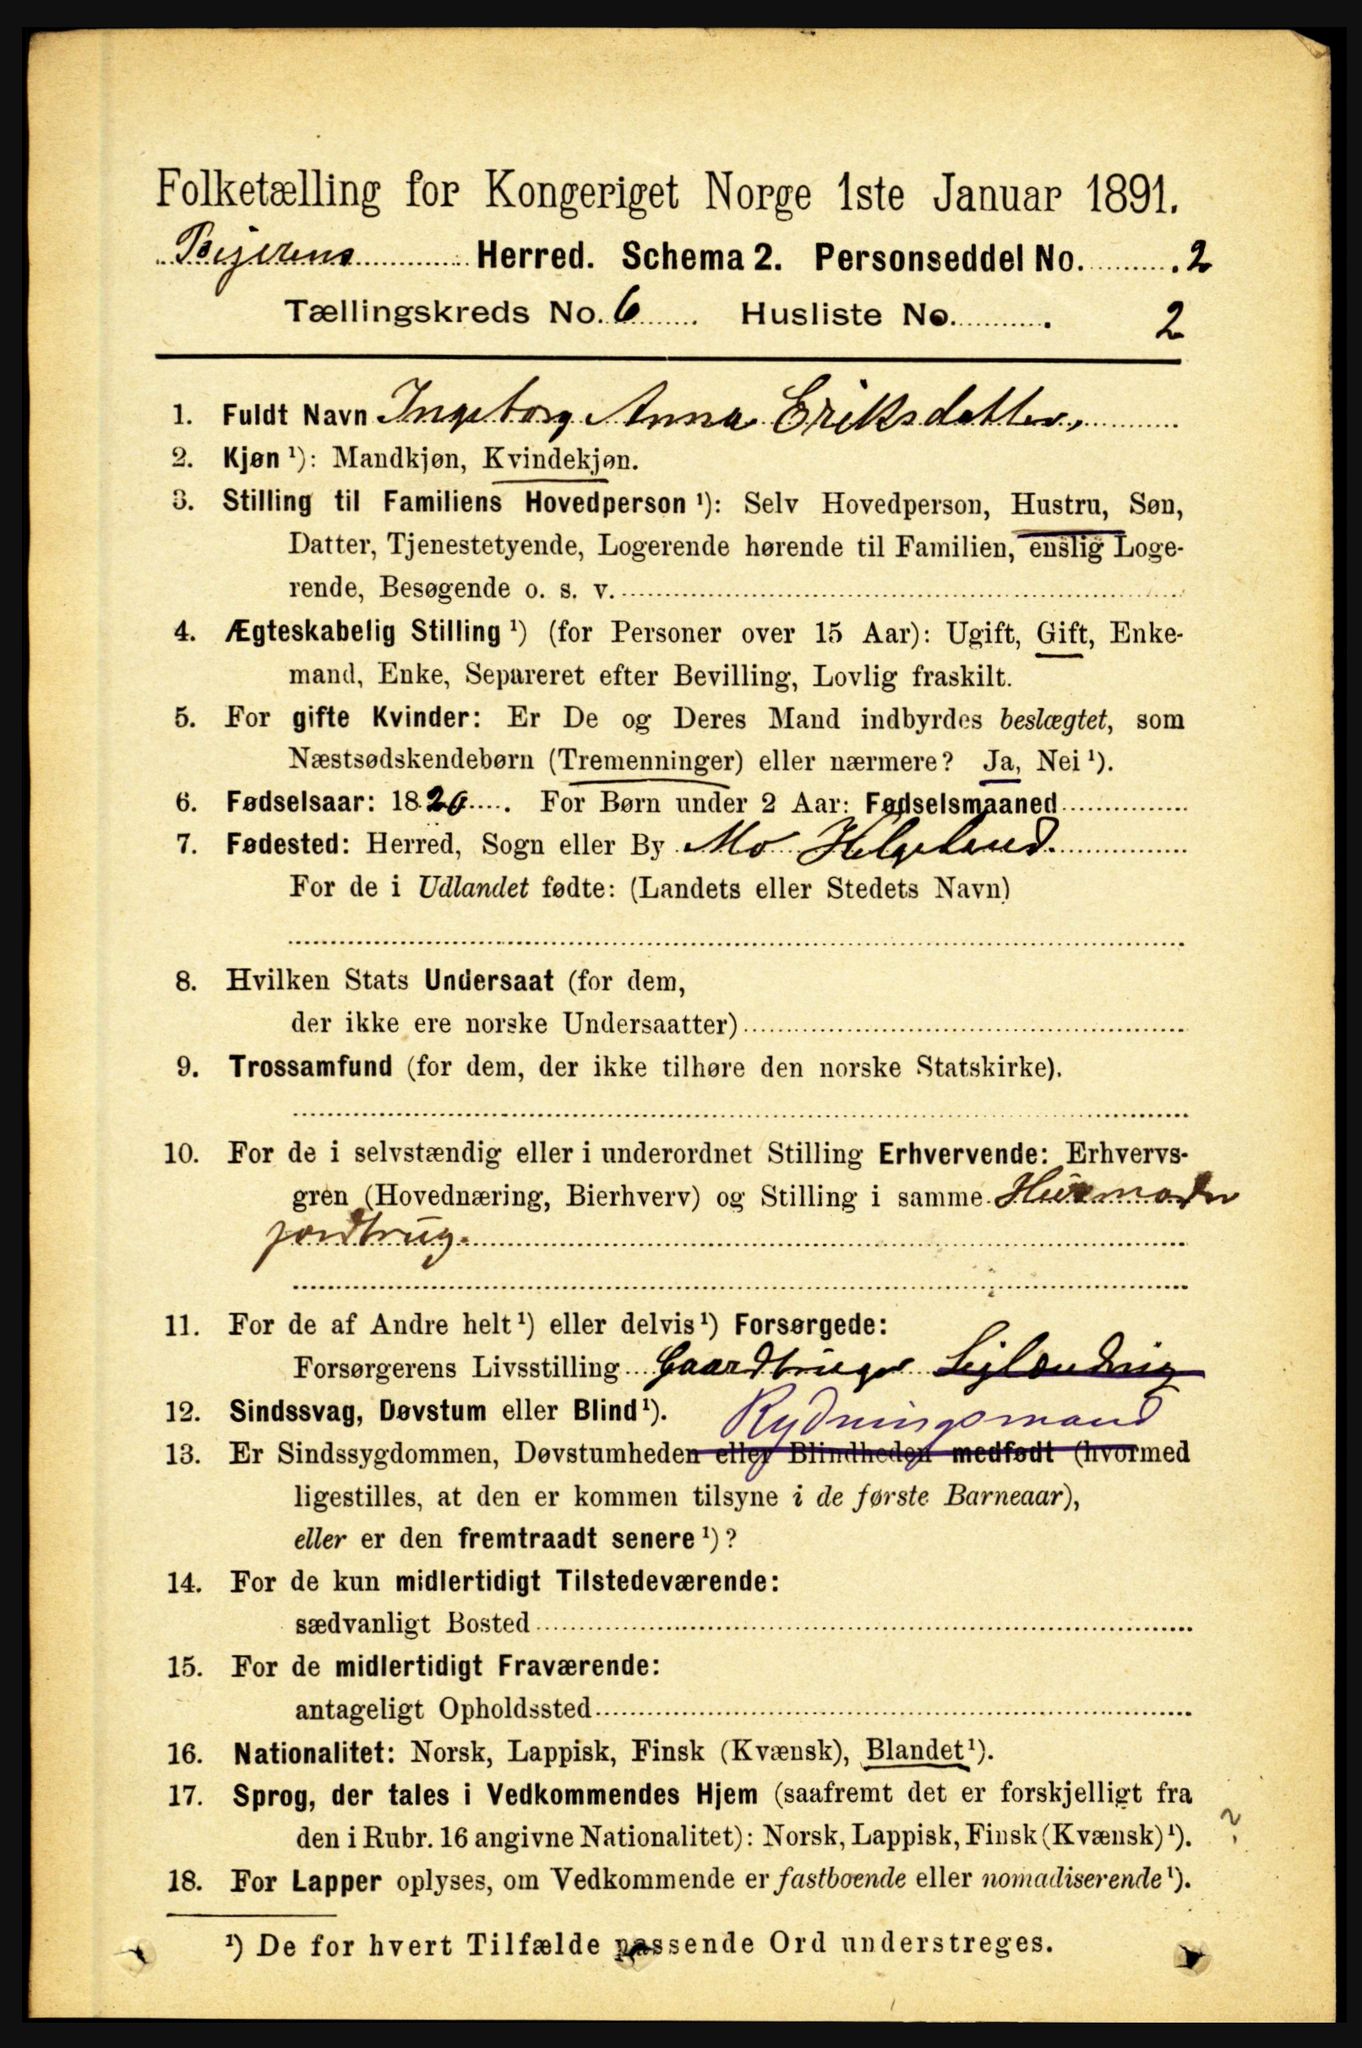 Folketælling for Kongeriget Norge 1ste Januar 1891.
Bejerens Herred. Schema 2. Personseddel No. 2
Tællingskreds No. 6 Husliste No. 2
1. Fuldt Navn Ingeborg Anna Eriksdatter,
2. Kjøn ¹): Mandkjøn, Kvindekjøn.
3. Stilling til Familiens Hovedperson ¹): Selv Hovedperson, Hustru, Søn,
Datter, Tjenestetyende, Logerende hørende til Familien, enslig Loge-
rende, Besøgende o. s. v.
4. Ægteskabelig Stilling ¹) (for Personer over 15 Aar): Ugift, Gift, Enke-
mand, Enke, Separeret efter Bevilling, Lovlig fraskilt.
5. For gifte Kvinder: Er De og Deres Mand indbyrdes beslægtet, som
Næstsødskendebørn (Tremenninger) eller nærmere? Ja, Nei ¹).
6. Fødselsaar: 1820. For Børn under 2 Aar: Fødselsmaaned
7. Fødested: Herred, Sogn eller By Mo Helgeland.
For de i Udlandet fødte: (Landets eller Stedets Navn)
8. Hvilken Stats Undersaat (for dem,
der ikke ere norske Undersaatter)
9. Trossamfund (for dem, der ikke tilhøre den norske Statskirke).
10. For de i selvstændig eller i underordnet Stilling Erhvervende: Erhvervs-
gren (Hovednæring, Bierhverv) og Stilling i samme Husmoder
jordbrug.
11. For de af Andre helt ¹) eller delvis ¹) Forsørgede:
Forsørgerens Livsstilling Gaardbruger
12. Sindssvag, Døvstum eller Blind ¹). Rydningsmand
13. Er Sindssygdommen, Døvstumheden eller Blindheden medfødt (hvormed
ligestilles, at den er kommen tilsyne i de første Barneaar),
eller er den fremtraadt senere ¹)?
14. For de kun midlertidigt Tilstedeværende:
sædvanligt Bosted
15. For de midlertidigt Fraværende:
antageligt Opholdssted
16. Nationalitet: Norsk, Lappisk, Finsk (Kvænsk), Blandet ¹).
17. Sprog, der tales i Vedkommendes Hjem (saafremt det er forskjelligt fra
den i Rubr. 16 angivne Nationalitet): Norsk, Lappisk, Finsk (Kvænsk) ¹). ?
18. For Lapper oplyses, om Vedkommende er fastboende eller nomadiserende ¹).
¹) De for hvert Tilfælde passende Ord understreges.